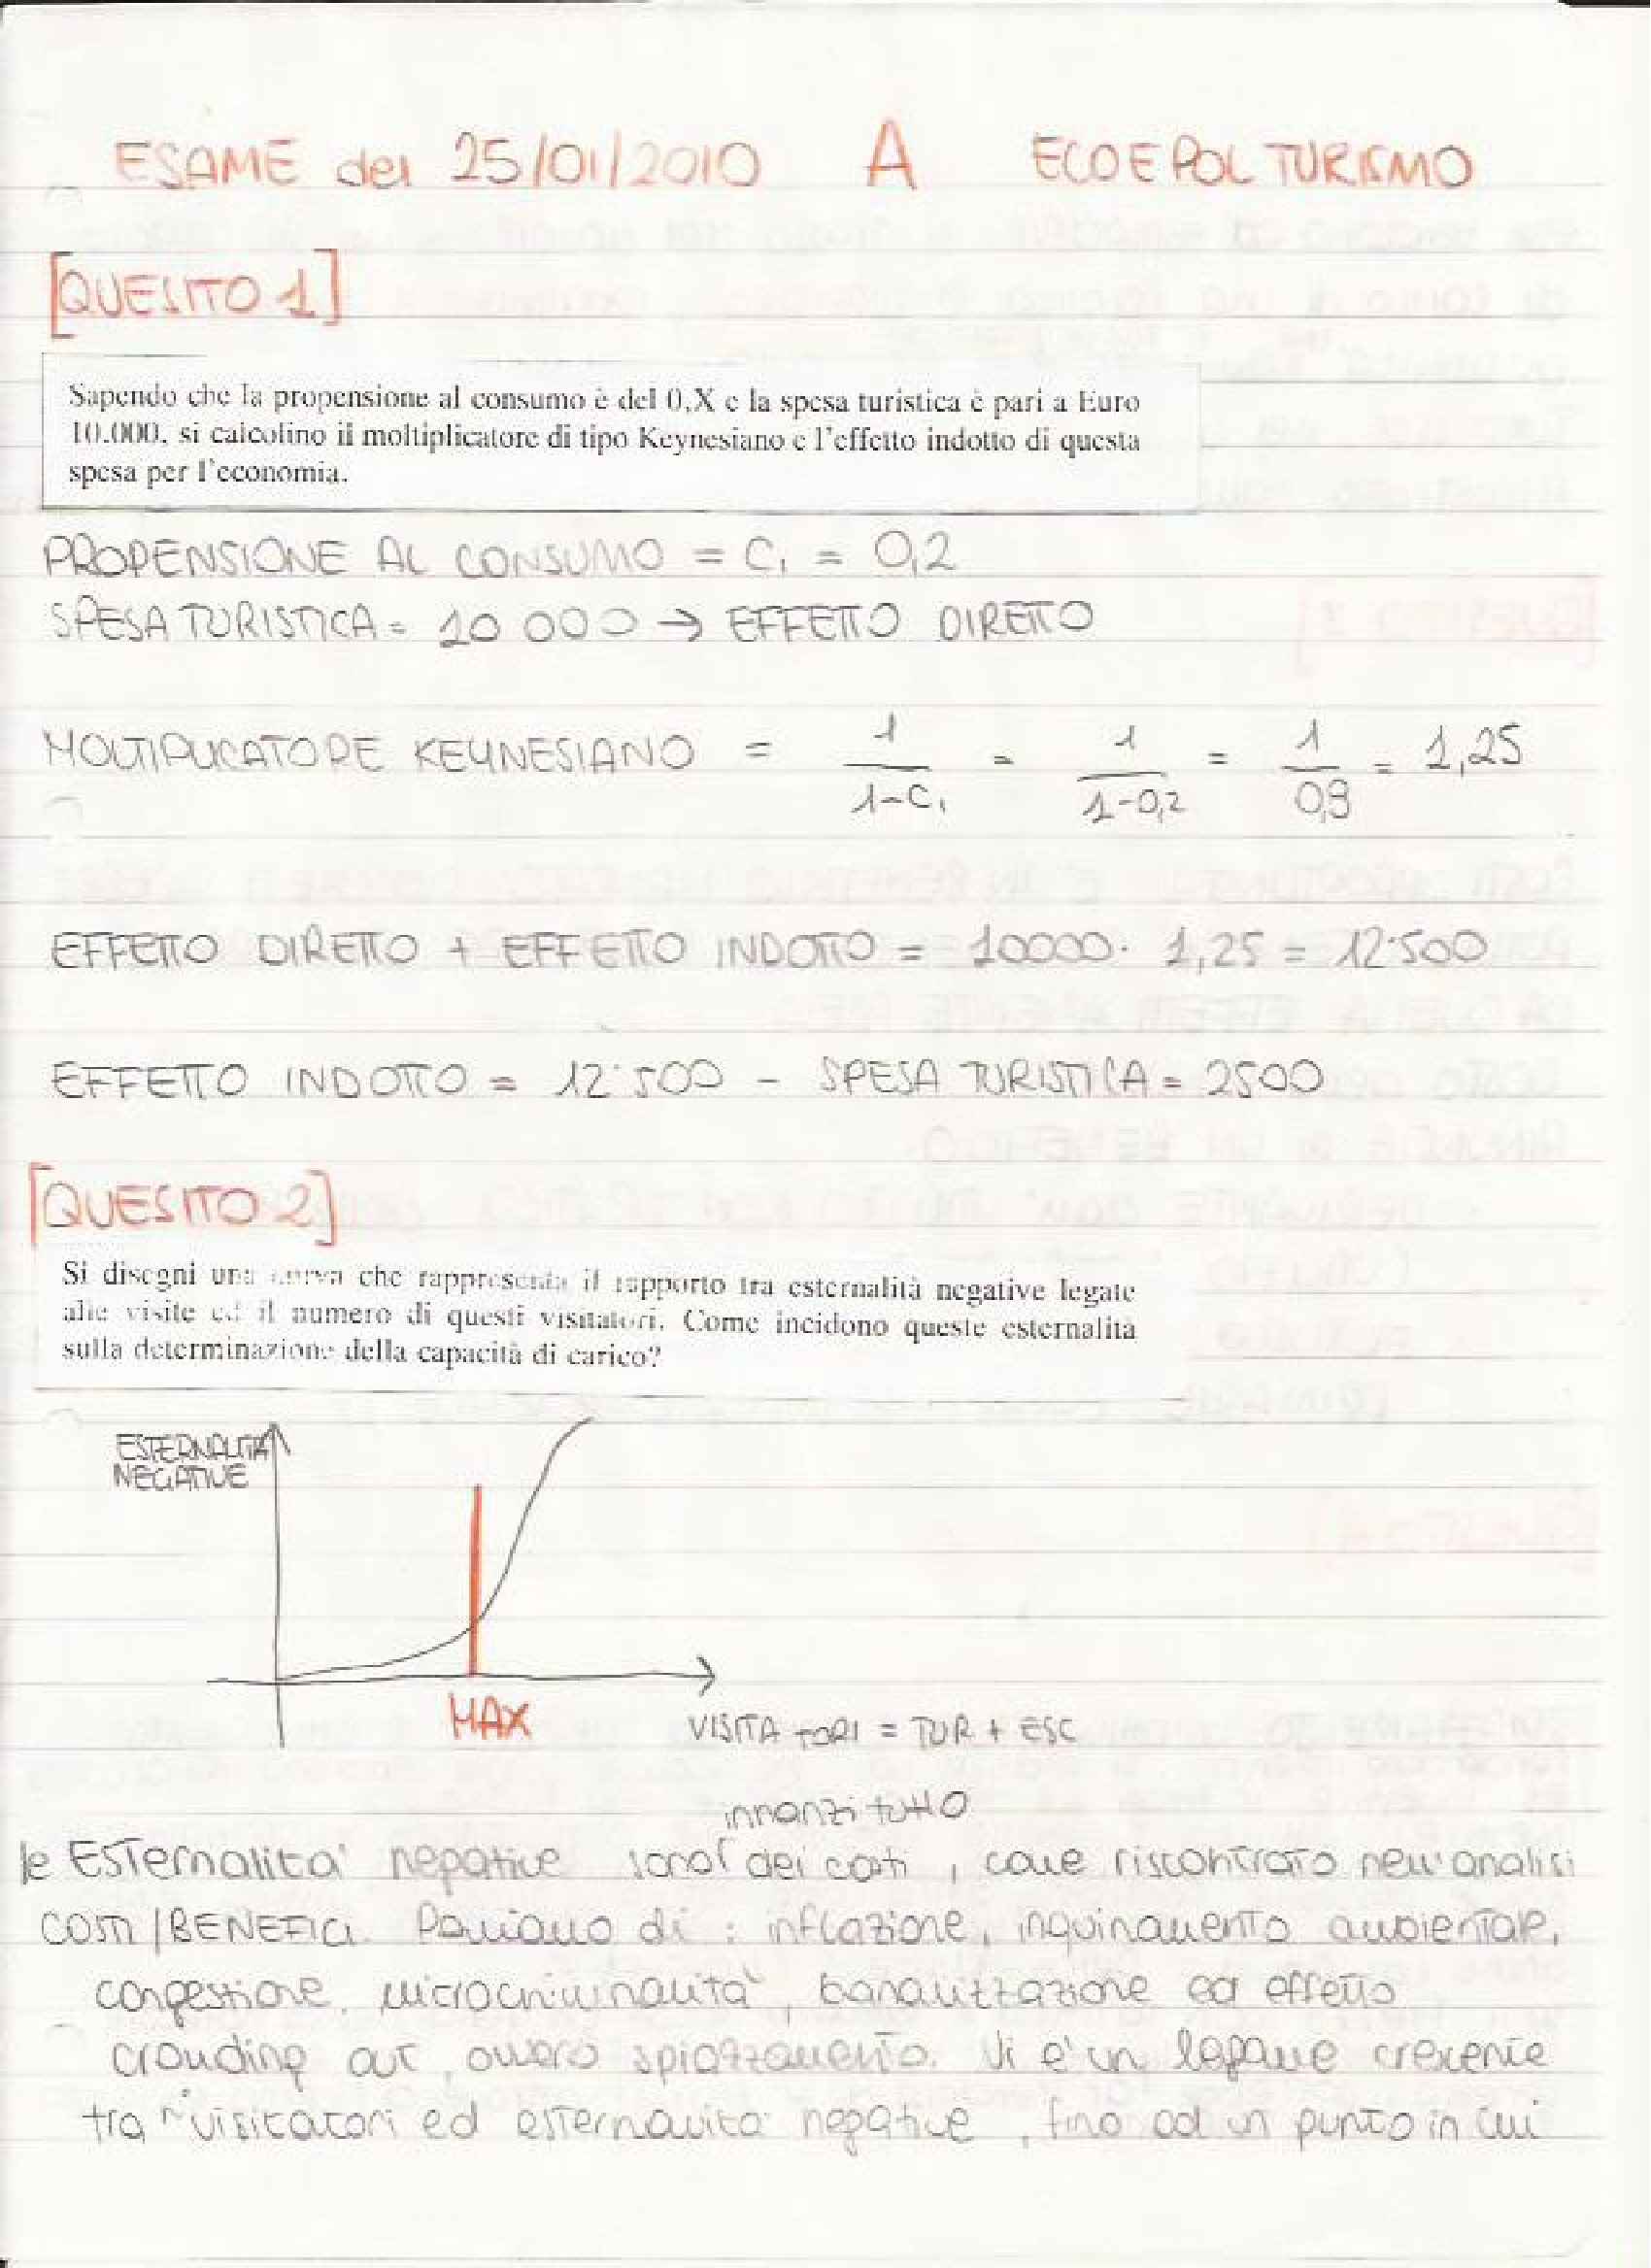 ESAME del 25/01/2010 A ECO E POL TURISMO
[QUESITO 1]
Sapendo che la propensione al consumo è del 0,X e la spesa turistica è pari a Euro
10.000, si calcolino il moltiplicatore di tipo Keynesiano e l'effetto indotto di questa
spesa per l'economia.
PROPENSIONE AL CONSUMO = C₁ = 0,2
SPESA TURISTICA = 10 000 → EFFETTO DIRETTO
MOLTIPLICATORE KEYNESIANO = 1/(1-C₁) = 1/(1-0,2) = 1/0,8 = 1,25
EFFETTO DIRETTO + EFFETTO INDOTTO = 10000· 1,25 = 12·500
EFFETTO INDOTTO = 12·500 - SPESA TURISTICA = 2500
[QUESITO 2]
Si disegni una curva che rappresenta il rapporto tra esternalità negative legate
alle visite ed il numero di questi visitatori. Come incidono queste esternalità
sulla determinazione della capacità di carico?
ESTERNALITÀ
NEGATIVE
MAX
VISITATORI = TUR + ESC
innanzitutto
le ESTernalità negative sono dei costi, come riscontrato nell'analisi
COSTI/BENEFICI. Parliamo di : inflazione, inquinamento ambientale,
congestione, microcriminalità, banalizzazione ed effetto
crowding out, ovvero spiazzamento. Vi è un legame crescente
tra n° visitatori ed esternalità negative, fino ad un punto in cui